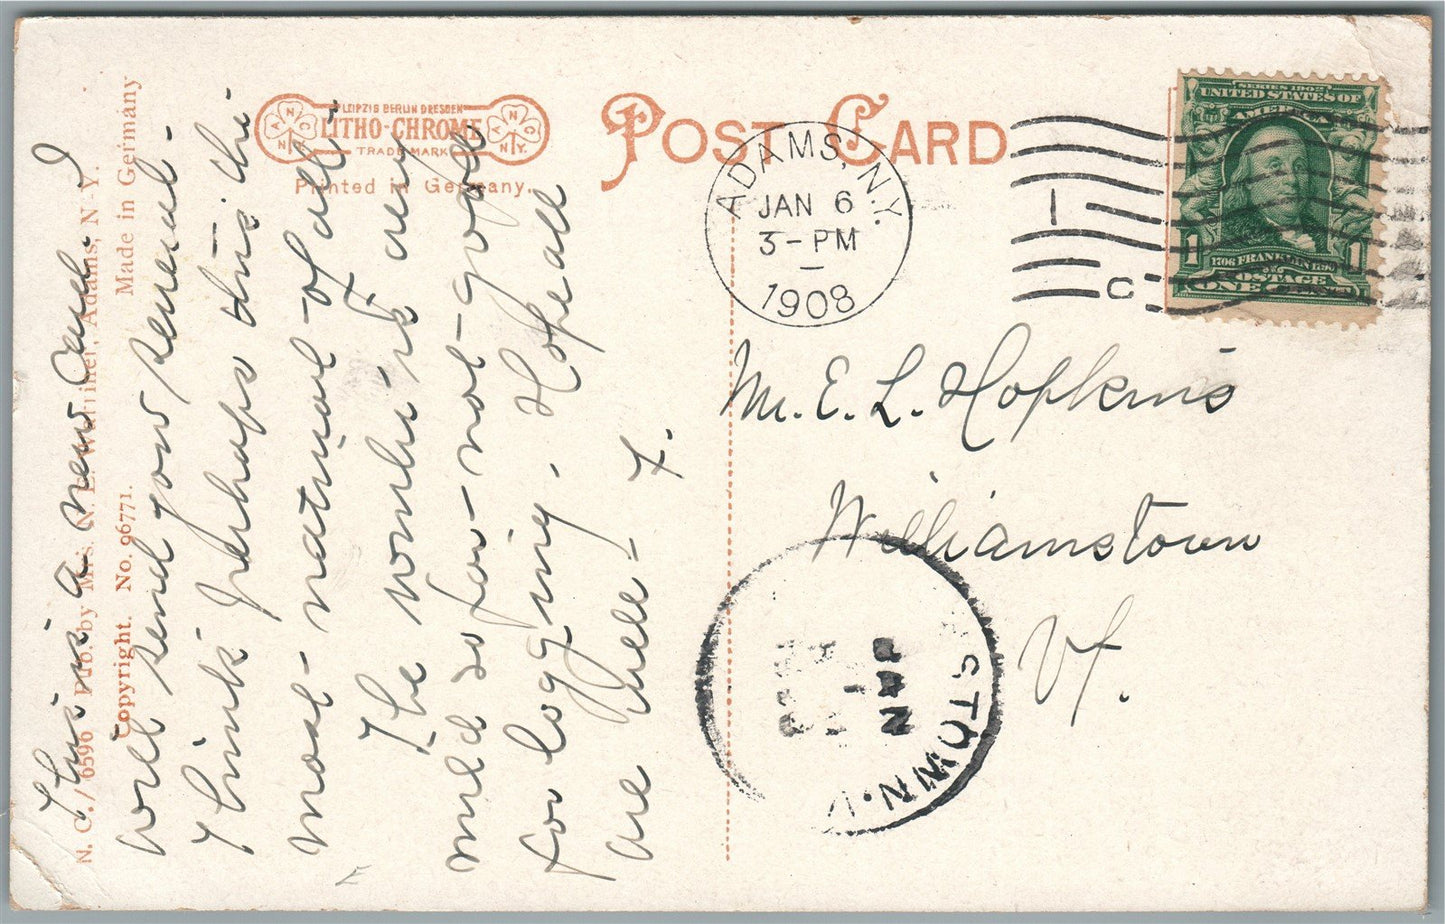 LEIPZIG BERLIN DRESDEN
LITHO-CHROME
TRADE MARK
N.C.Co. N.Y.
Printed in Germany.
POST CARD
ADAMS, N.Y.
JAN 6
3-PM
1908
1
C
SERIES 1902
UNITED STATES OF
AMERICA
1706 FRANKLIN 1790
1 POSTAGE 1
ONE CENT
M. E. L. Hopkins
Williamstown
Vt.
STOWN.V
JAN
This is a new card. I
will send you several -
I think perhaps this the
most - natural - of all -
The weather is very
mild so far - not - good
for logging. Hope all
are well - F.
N. C. 6596 Pub. by Mrs. N. E. Adams, N. Y.
Copyright. No. 96771. Made in Germany